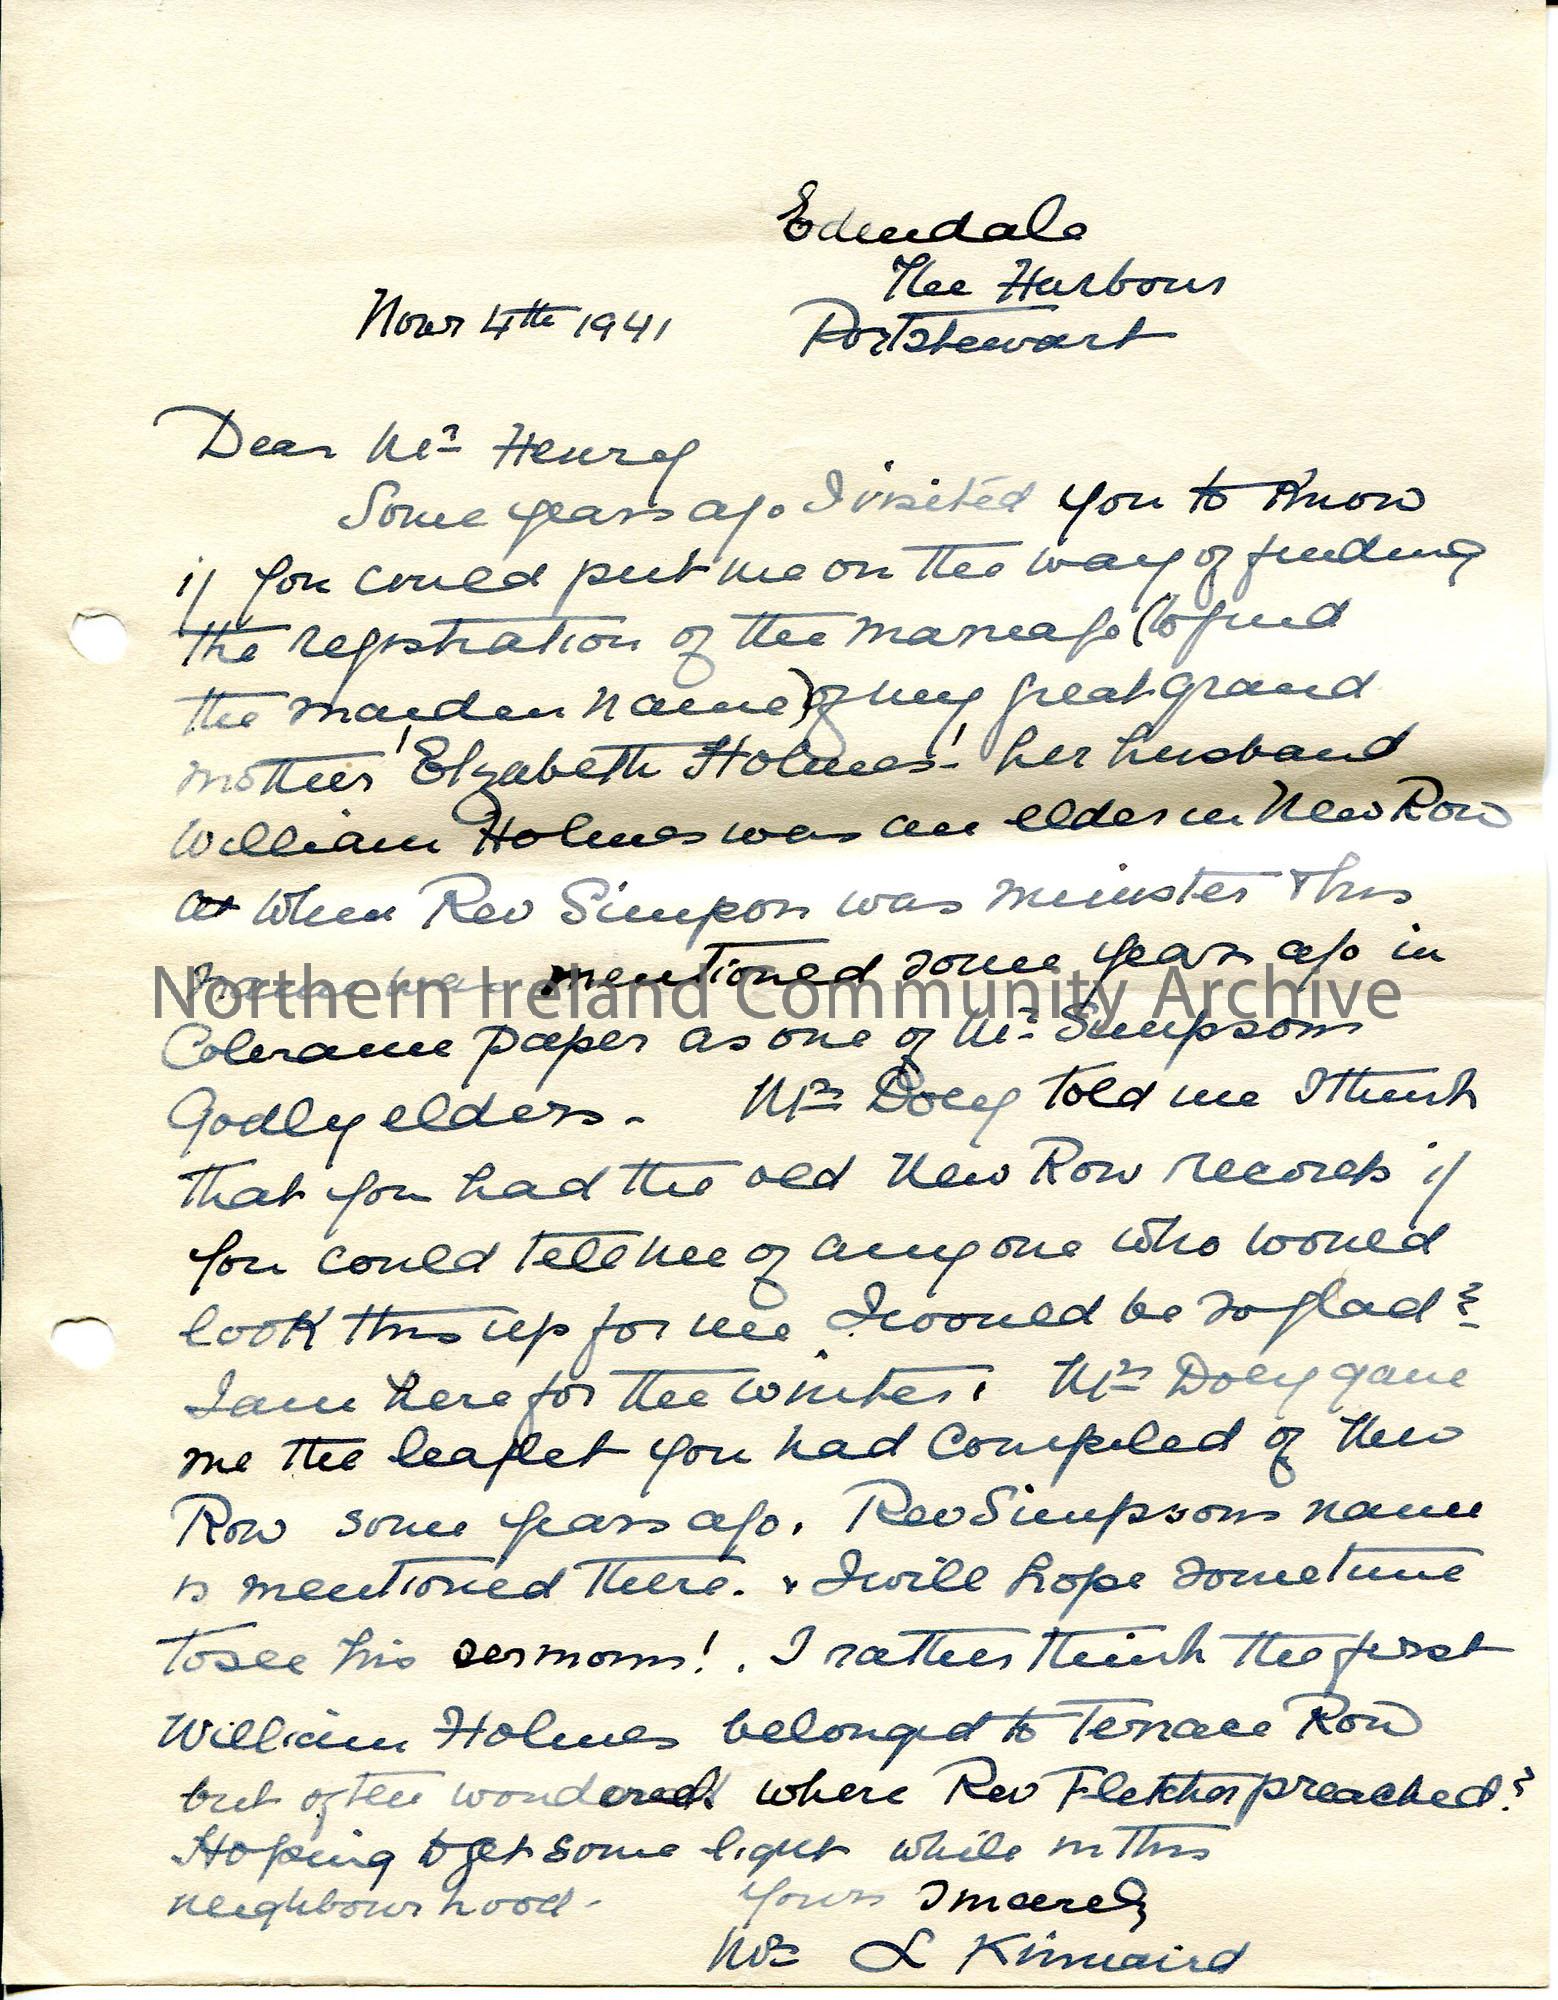 Edendale
The Harbour
Novr 4th 1941
Portstewart
Dear Mr Henry
Some years ago I visited you to know
if you could put me on the way of finding
the registration of the marriage (to find
the maiden name) of my great grand
mother 'Elzabeth Holmes' her husband
William Holmes was an elder in New Row
at when Rev Simpson was minister this
name was mentioned some years ago in
Northern Ireland Community Archive
Coleraine paper as one of Mr Simpsons
Godly elders. Mrs Doey told me I think
that you had the old New Row records if
you could tell me of anyone who would
look this up for me I would be so glad?
I am here for the winter. Mrs Doey gave
me the leaflet you had compiled of New
Row some years ago. Rev Simpsons name
is mentioned there. I will hope sometime
to see his sermons! I rather think the first
William Holmes belonged to Terrace Row
but often wondered where Rev Fletcher preached?
Hoping to get some light while in this
neighbourhood - Yours Sincerely
L Kinnaird